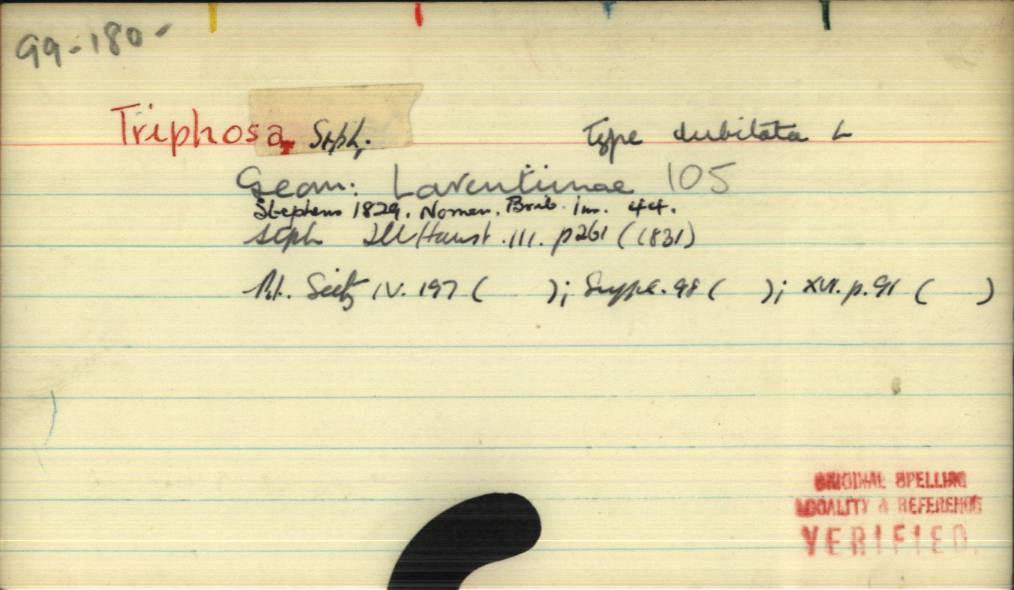 99-180-
Triphosa, Stph. Type dubitata L
Geom: Larentiinae 105
Stephens 1829. Nomen. Brit. Ins. 44.
Steph Ill Haust. III. p261 (1831)
Pt. Seitz IV. 197 ( ); Suppl. 98 ( ); XVI. p. 91 ( )
ORIGINAL SPELLING
LOCALITY & REFERENCE
VERIFIED.